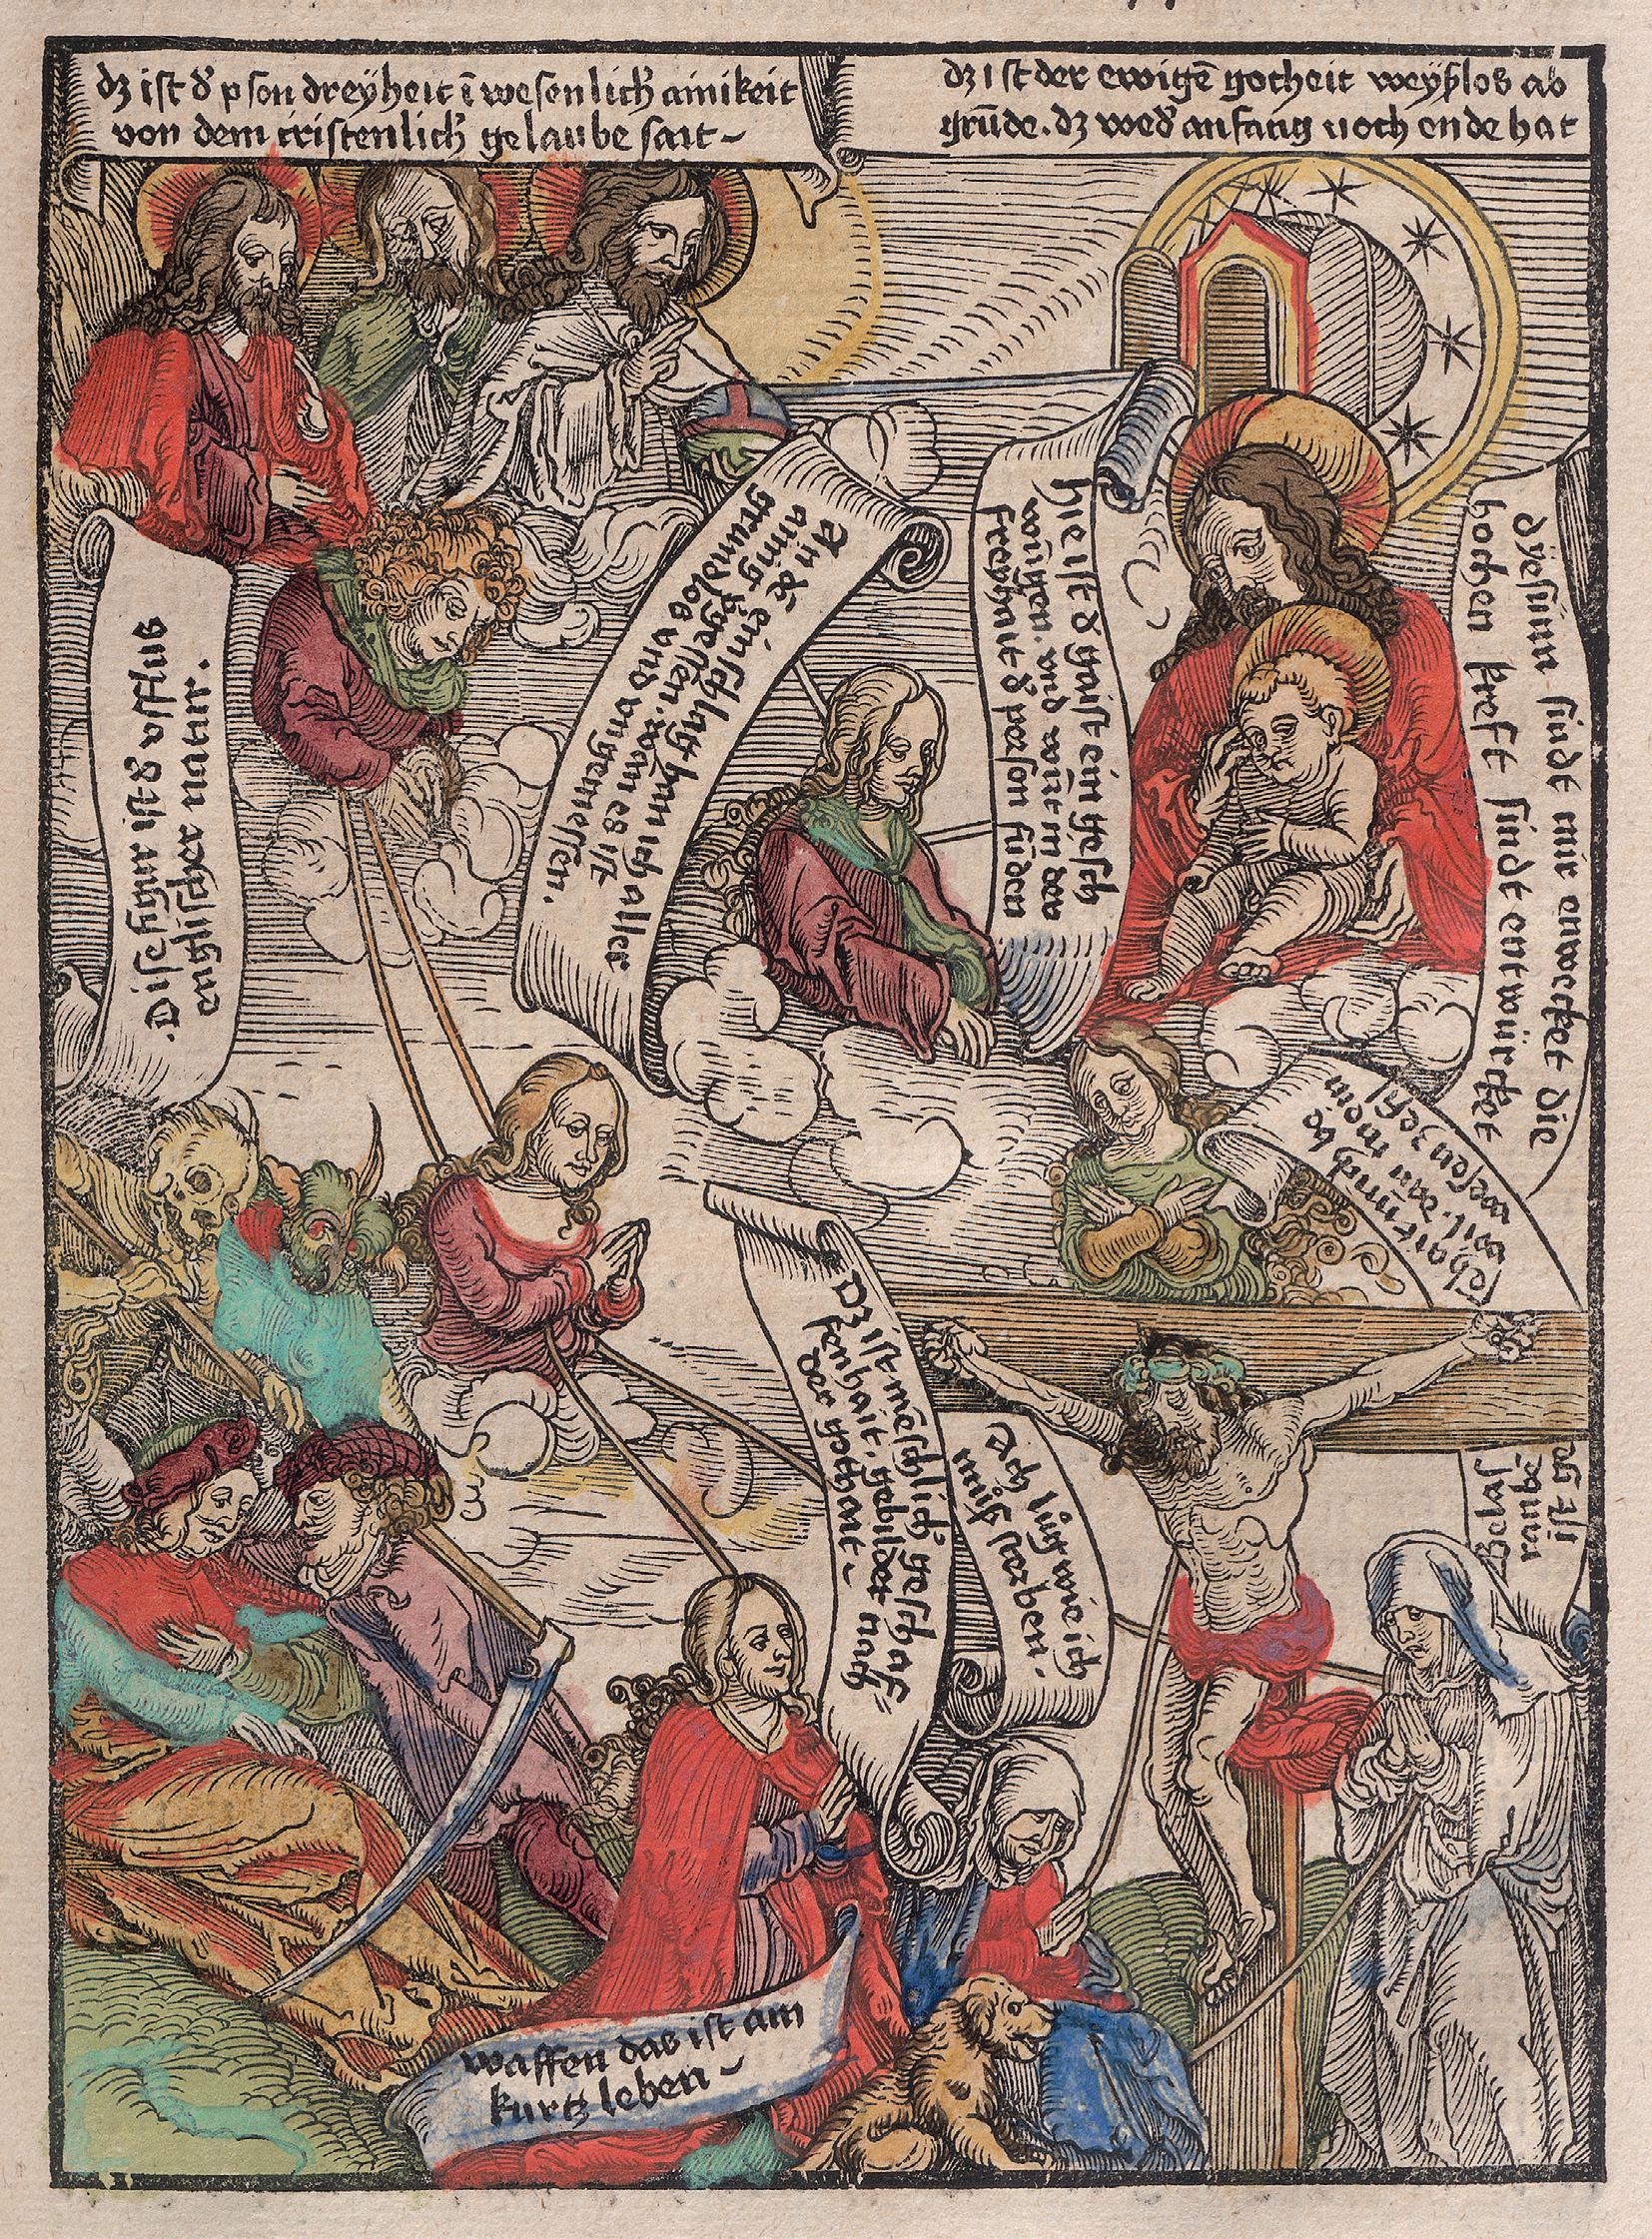 dz ist d᷎ p son dreÿheit ī wesenlich᷎ ainikeit
von dem cristenlich᷎ gelaube sait~
dz ist der ewigē gotheit weÿßlos ab
grūde. dz wed᷎ anfang noch ende hat
Dise figur ist d᷎ vsflus
englischer natur.
In dē einschlag han ich aller
ainig v᷎gessen. wān es ist
grundlos vnd vngemessen.
hie ist d᷎ gaist ein gesch
wūngen. vnd wirt in der
freyhait d᷎ person fūden
dÿe sinn sindt mir enwecket die
hochen kreft sindt entwürcket
wil. dan mein
wesen
Dz ist mēschlich᷎ geschaf
fenhait. gebildet nach
der gothait~
Ach lūg wie ich
můß sterben.
waffen das ist am
kurtz leben~